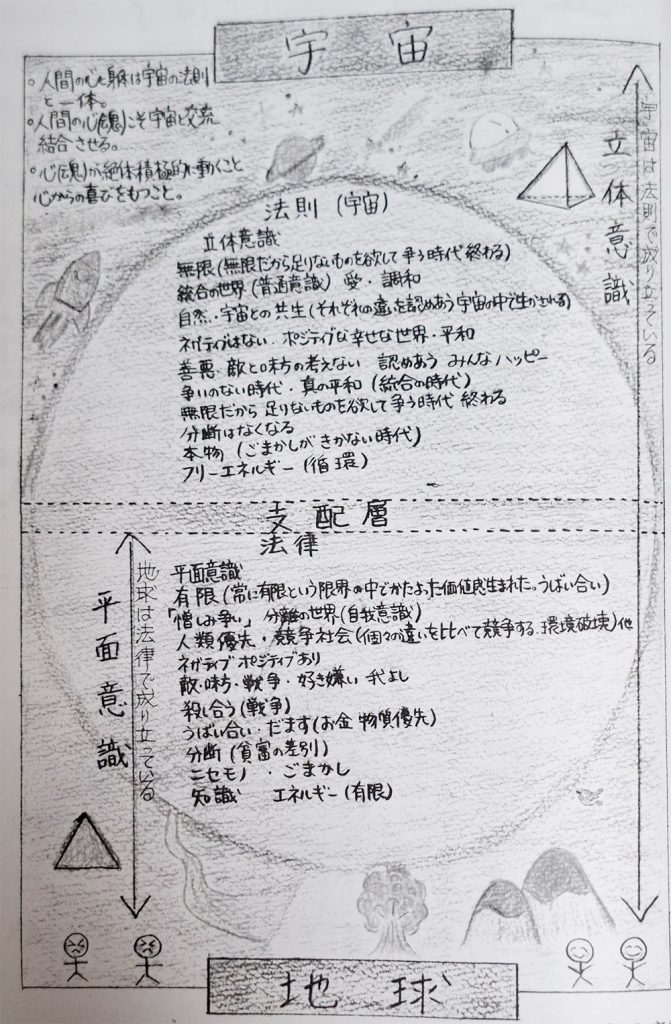 宇宙
○人間の心と身体は宇宙の法則
と一体。
○人間の心(魂)こそ宇宙と交流
結合させる。
○心(魂)が絶体積極的に動くこと
心からの喜びをもつこと。
立体意識
宇宙は法則で成り立っている
法則(宇宙)
立体意識
無限(無限だから足りないものを欲して争う時代終わる)
統合の世界(普通意識) 愛・調和
自然・宇宙との共生(それぞれの違いを認めあう宇宙の中で生かされる)
ネガティブはない・ポジティブな幸せな世界・平和
善悪・敵と味方の考えない 認めあう みんなハッピー
争いのない時代・真の平和(統合の時代)
無限だから足りないものを欲して争う時代 終わる
分断はなくなる
本物(ごまかしがきかない時代)
フリーエネルギー(循環)
支配層
法律
平面意識
有限(常に有限という限界の中でかたよった価値感生まれた。うばい合い)
「憎しみ争い」分離の世界(自我意識)
人類優先・競争社会(個々の違いを比べて競争する、環境破壊)他
ネガティブ ポジティブあり
敵・味方・戦争・好き嫌い 我よし
殺し合う(戦争)
うばい合い・だます(お金 物質優先)
分断(貧富の差別)
ニセモノ ・ごまかし
知識 エネルギー(有限)
平面意識
地球は法律で成り立っている
地球